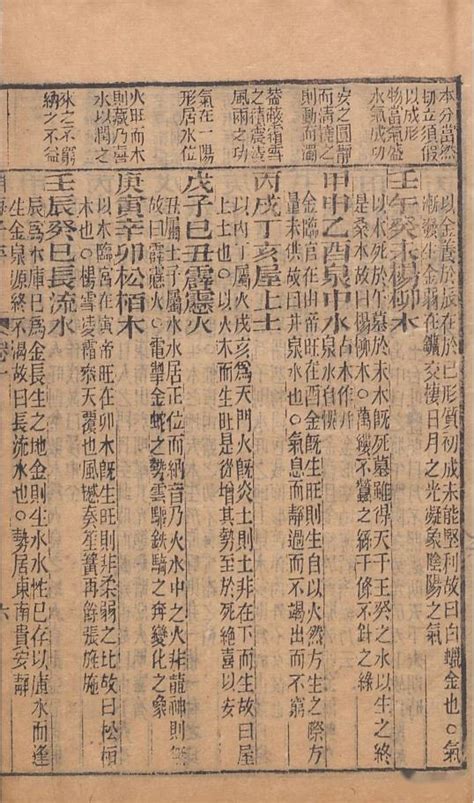 本分當然
切立須假
以成形
物當氣盛
水氣成功
安之圓靜
而清達之
則動而濁
葢載霜雪
之積震凌
風雨之功
氣在一陽
形居水位
火旺而木
則栽乃喜
水以潤之
來之不窮
納之不益
於辰在於巳形質初成未能堅利故曰白蠟金也○氣
漸發生金在鑛交棲日月之光凝象陰陽之氣
壬午癸未楊柳木
木死於午墓於未木既死墓雖得天干壬癸之水以生之終
是柔木故曰楊柳木○萬縷不蠶之絲千條不針之線
甲申乙酉泉中水 作井泉水自
金臨官在申帝旺在酉金既生旺則生自以火然方生之際方
量未供故曰井泉水也○氣息而靜過而不竭出而不窮
丙戌丁亥屋上土
以丙丁屬火戌亥爲天門火既炎上則土非在下而生故曰屋
上土也○以火木而生旺是從增其勢至於死絕喜以安
戊子巳丑霹靂火
丑屬土子屬水水居正位而納音乃火水中之火非龍神則無
故曰霹靂火○電掣金蛇之勢雲驅鉄騎之奔變化之象
庚寅辛卯松栢木
以木臨官在寅帝旺在卯木既生旺則非柔弱之比故曰松栢
木也○楊雪凌霜參天覆也風撼奏笙簧再餘張旌施
壬辰癸巳長流水
辰爲水庫巳爲金長生之地金則生水水性已存以庫水而逢
生金泉源終不渴故曰長流水也○勢居東南貴安靜
卷一 六